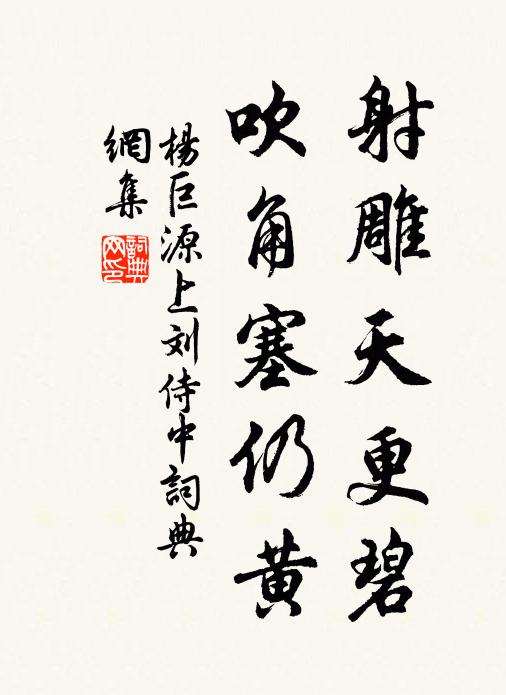 射雕天更碧
吹角塞仍黄
楊巨源上刘侍中詞典
網集
詞典
网印